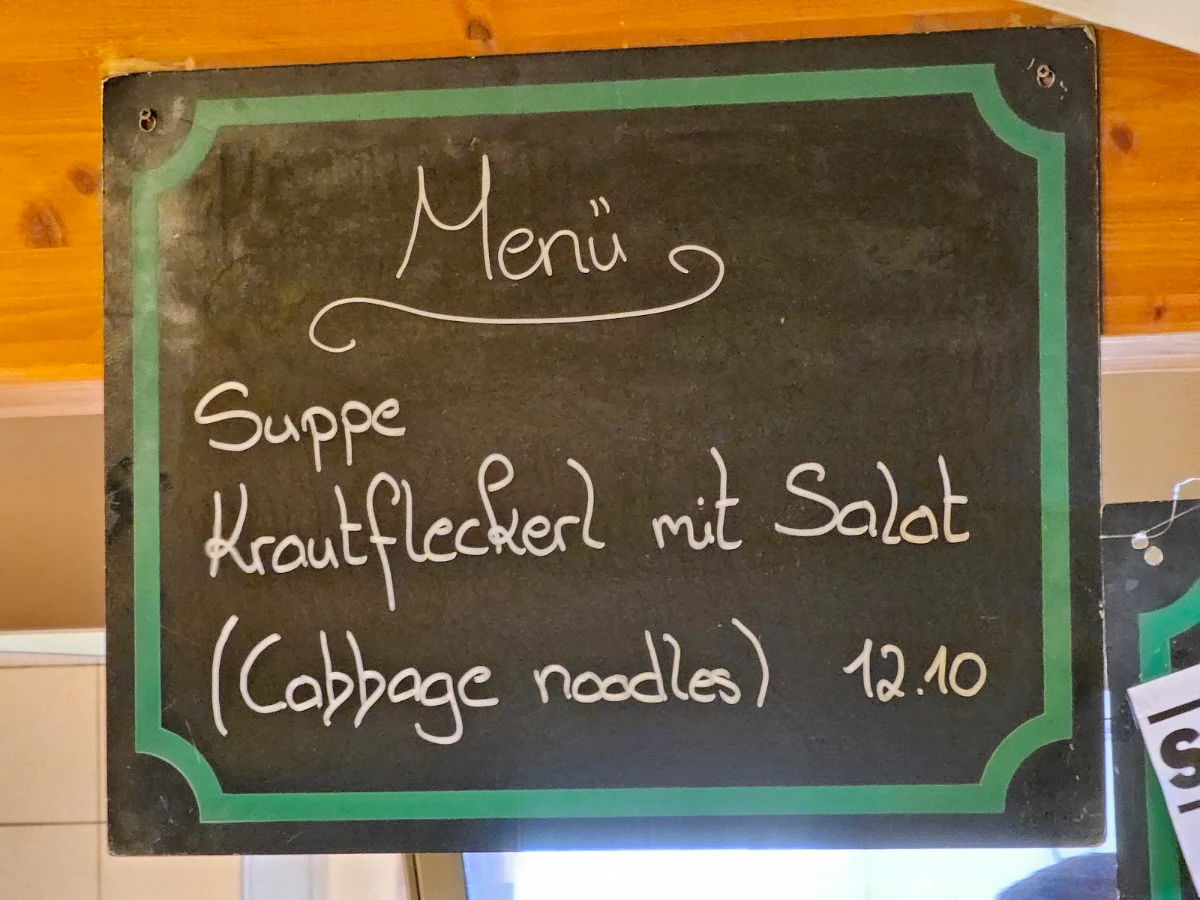 Menü
Suppe
Krautfleckerl mit Salat
(Cabbage noodles) 12.10
S